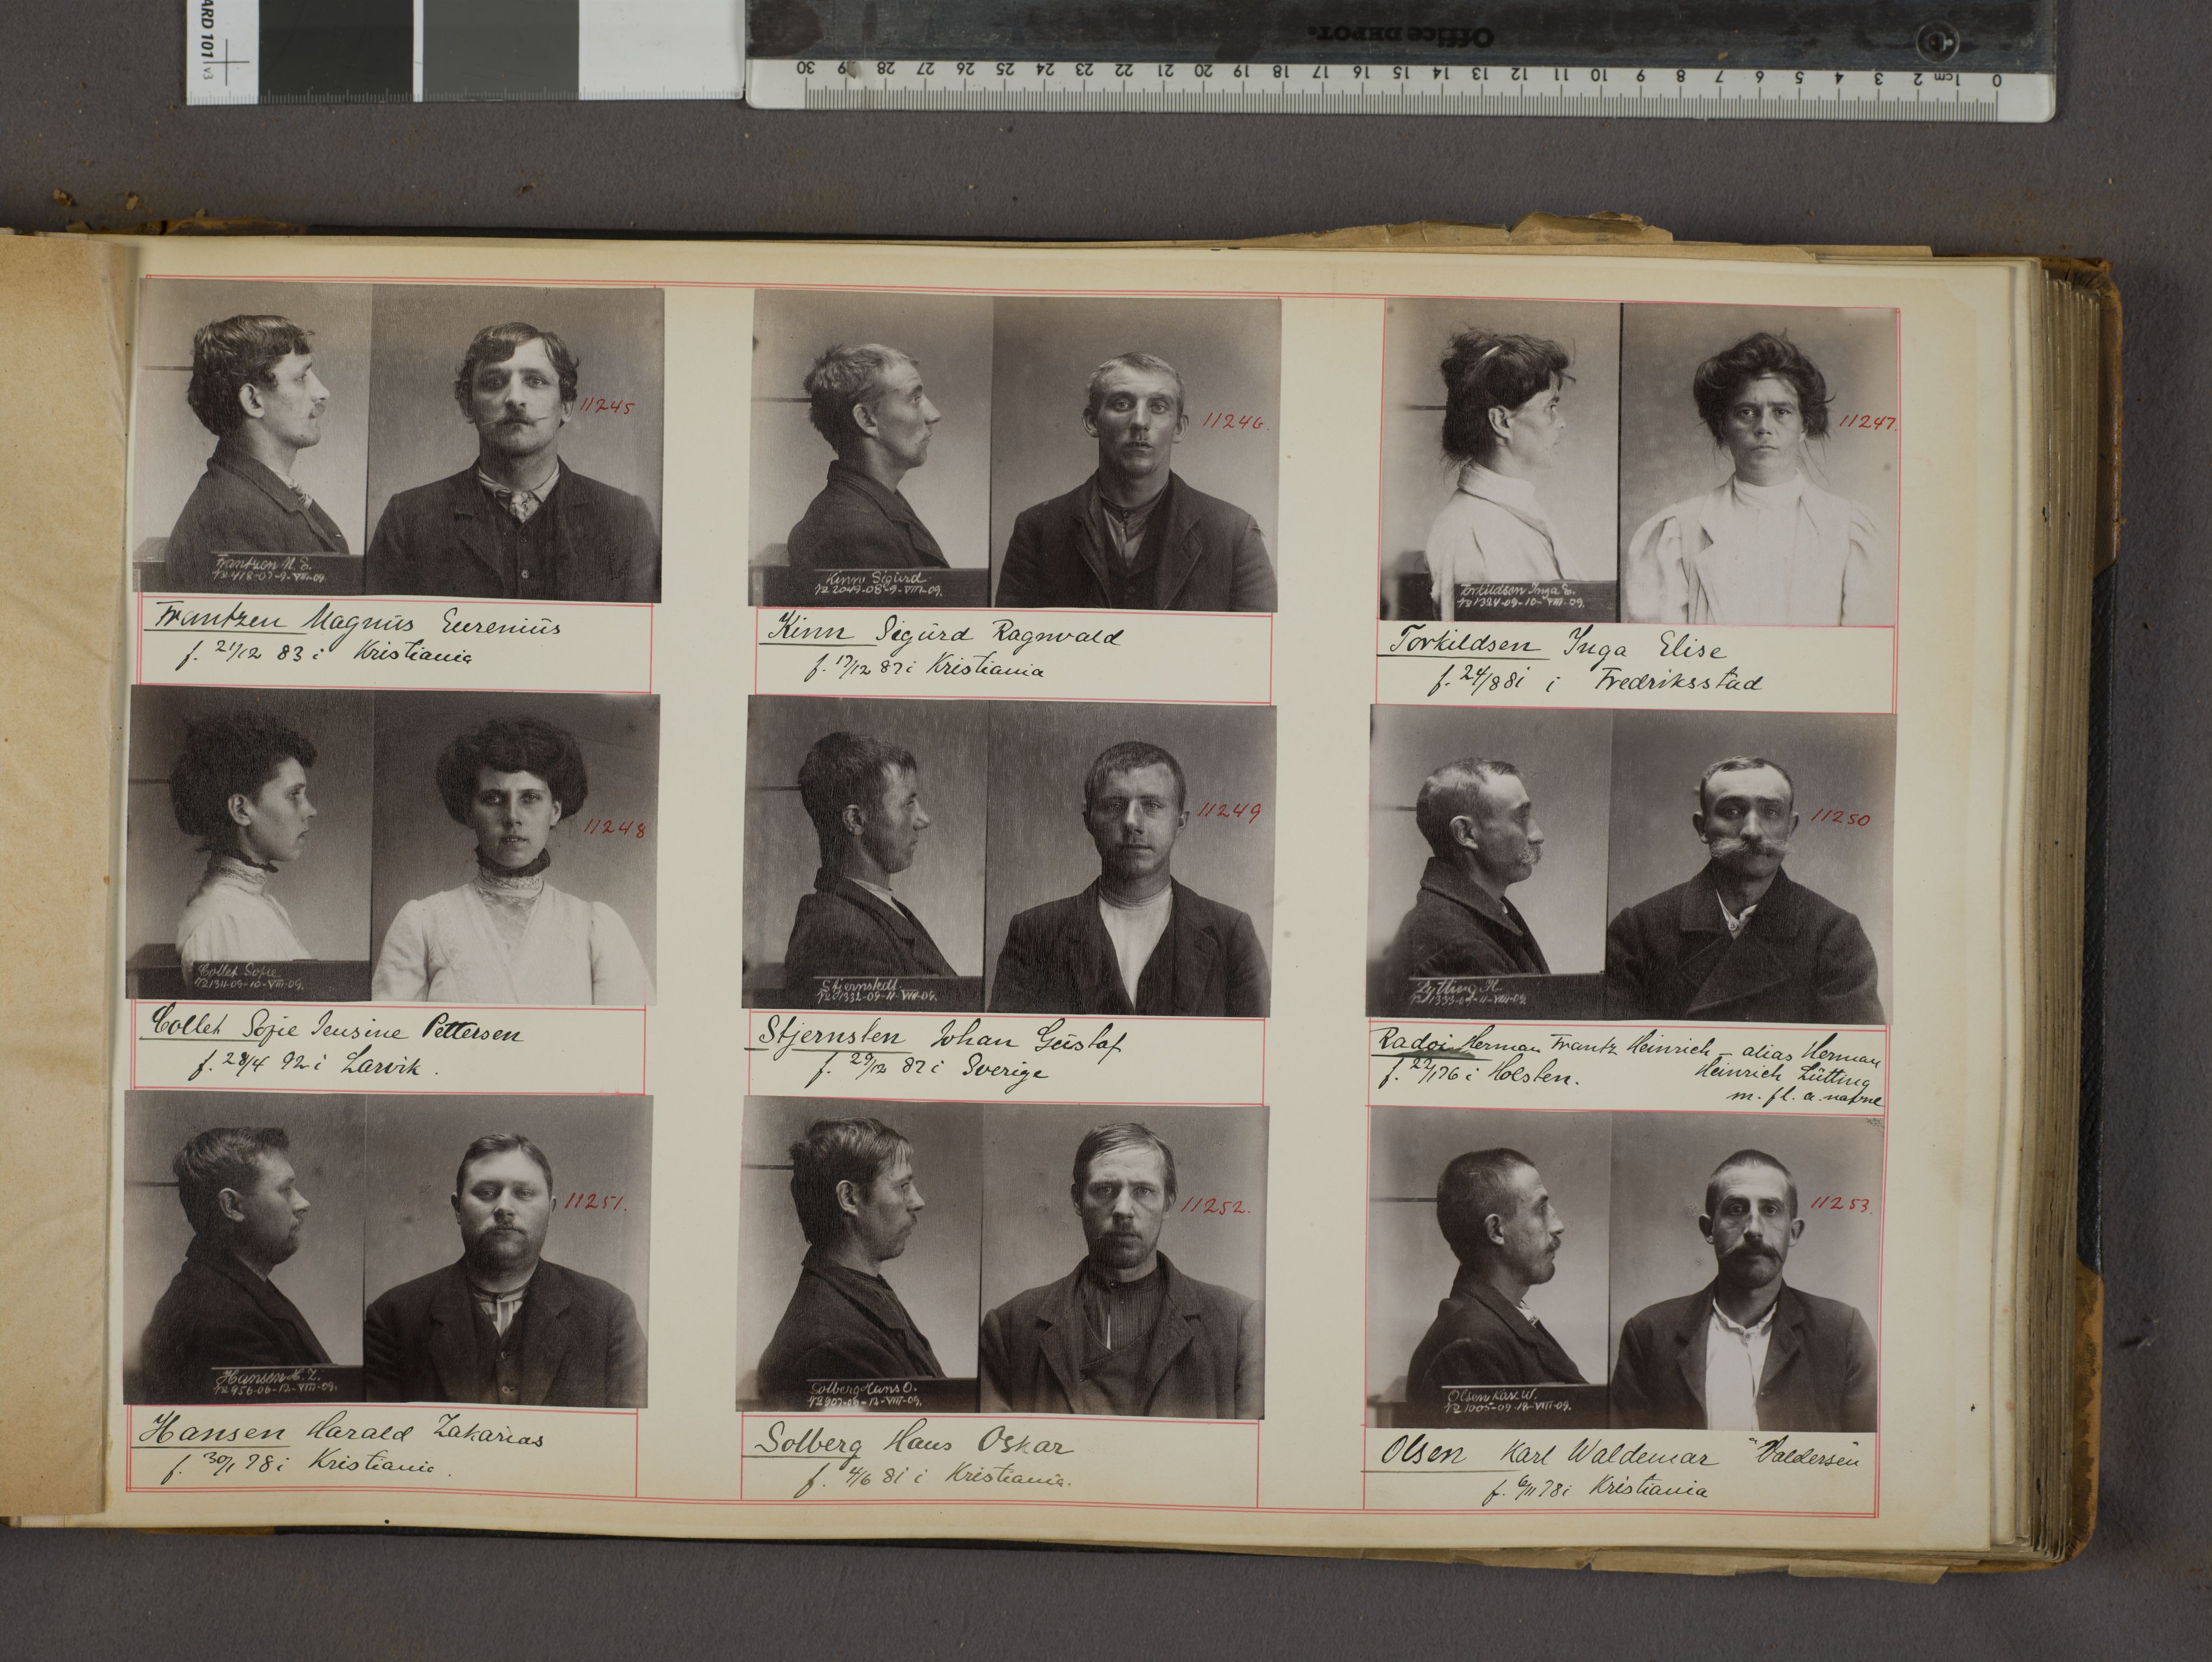 ARD 101 v3
Office DEPOT.
30 29 28 27 26 25 24 23 22 21 20 19 18 17 16 15 14 13 12 11 10 9 8 7 6 5 4 3 2 1cm 0
11245
Frantzen M. E.
No 418-07-9-VIII-09.
Frantzen Magnus Eurenius
f. 21/12 83 i Kristiania
11246.
Kinn Sigurd
No 2049-08-9-VIII-09.
Kinn Sigurd Ragnvald
f. 17/12 87 i Kristiania
11247.
Torkildsen Inga E.
No 1324-09-10-VIII-09.
Torkildsen Inga Elise
f. 24/8 81 i Fredriksstad
11248
Collet Sofie
No 1311-09-10-VIII-09.
Collet Sofie Jensine Pettersen
f. 28/4 92 i Larvik.
11249
Stjernstedt
No 1332-09-11-VIII-09.
Stjernsten Johan Gustaf
f. 29/12 87 i Sverige
11250
H.
No 1333-09-11-VIII-09.
Radoi Herman Frantz Heinrich - alias Herman
Heinrich Lütting
f. 22/1 76 i Holsten.
m. fl. a. nafne
11251.
Hansen H. Z.
No 956-06-12-VIII-09.
Hansen Harald Zakarias
f. 30/1 78 i Kristiania.
11252.
Solberg Hans O.
VIII-09.
Solberg Hans Oskar
f. 4/6 81 i Kristiania.
11253.
Olsen Karl W.
No 1005-09-18-VIII-09.
Olsen Karl Waldemar "Valdersen"
f. 6/11 78 i Kristiania